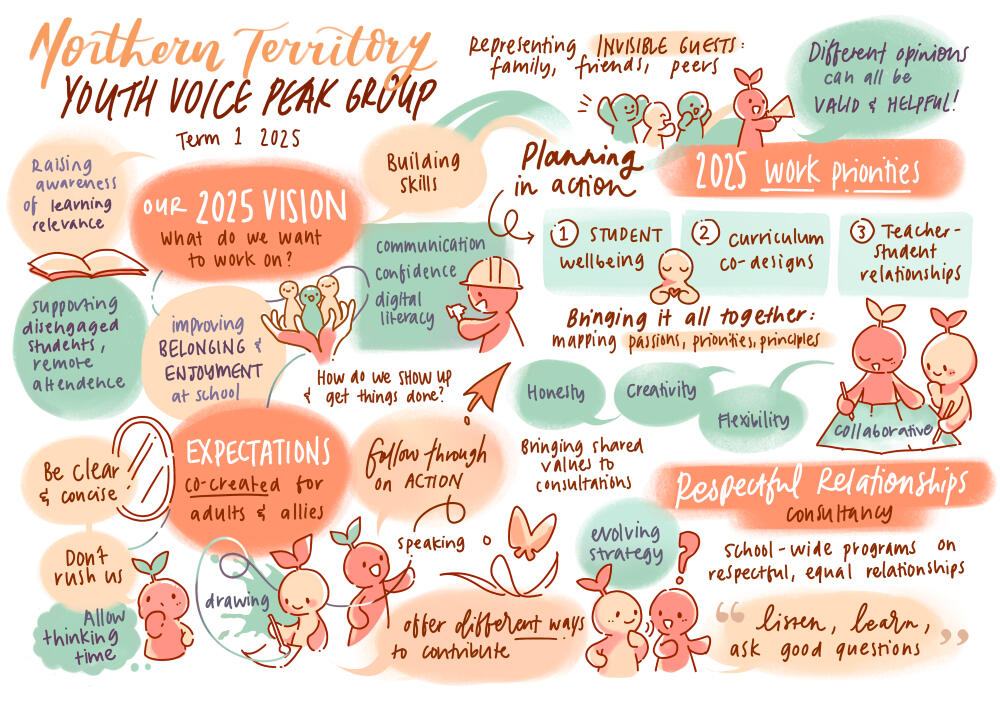 Northern Territory
YOUTH VOICE PEAK GROUP
Term 1 2025
Representing INVISIBLE GUESTS:
family, friends, peers
Different opinions
can all be
VALID & HELPFUL!
Raising
awareness
of learning
relevance
OUR 2025 VISION
What do we want
to work on?
Building
skills
communication
confidence
digital
literacy
supporting
disengaged
students,
remote
attendence
improving
BELONGING &
ENJOYMENT
at school
Planning
in action
2025 Work priorities
1 STUDENT
wellbeing
2 Curriculum
co-designs
3 Teacher-
student
relationships
Bringing it all together:
mapping passions, priorities, principles
Honesty
Creativity
Flexibility
collaborative
Bringing shared
values to
consultations
How do we show up
& get things done?
EXPECTATIONS
co-created for
adults & allies
Be clear
& concise
Don't
rush us
Allow
thinking
time
follow through
on ACTION
speaking
drawing
offer different ways
to contribute
Respectful Relationships
consultancy
evolving
strategy
?
School-wide programs on
respectful, equal relationships
“listen, learn,
ask good questions”